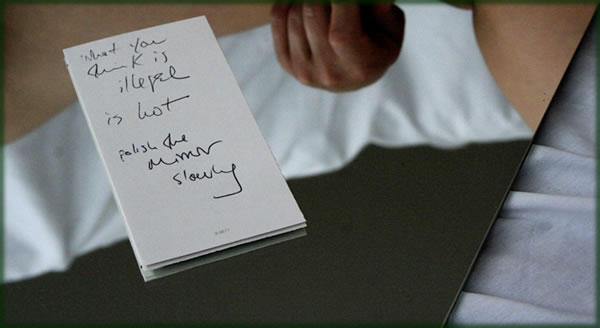 what you
think is
illegal
is hot
polish the
mirror
slowly